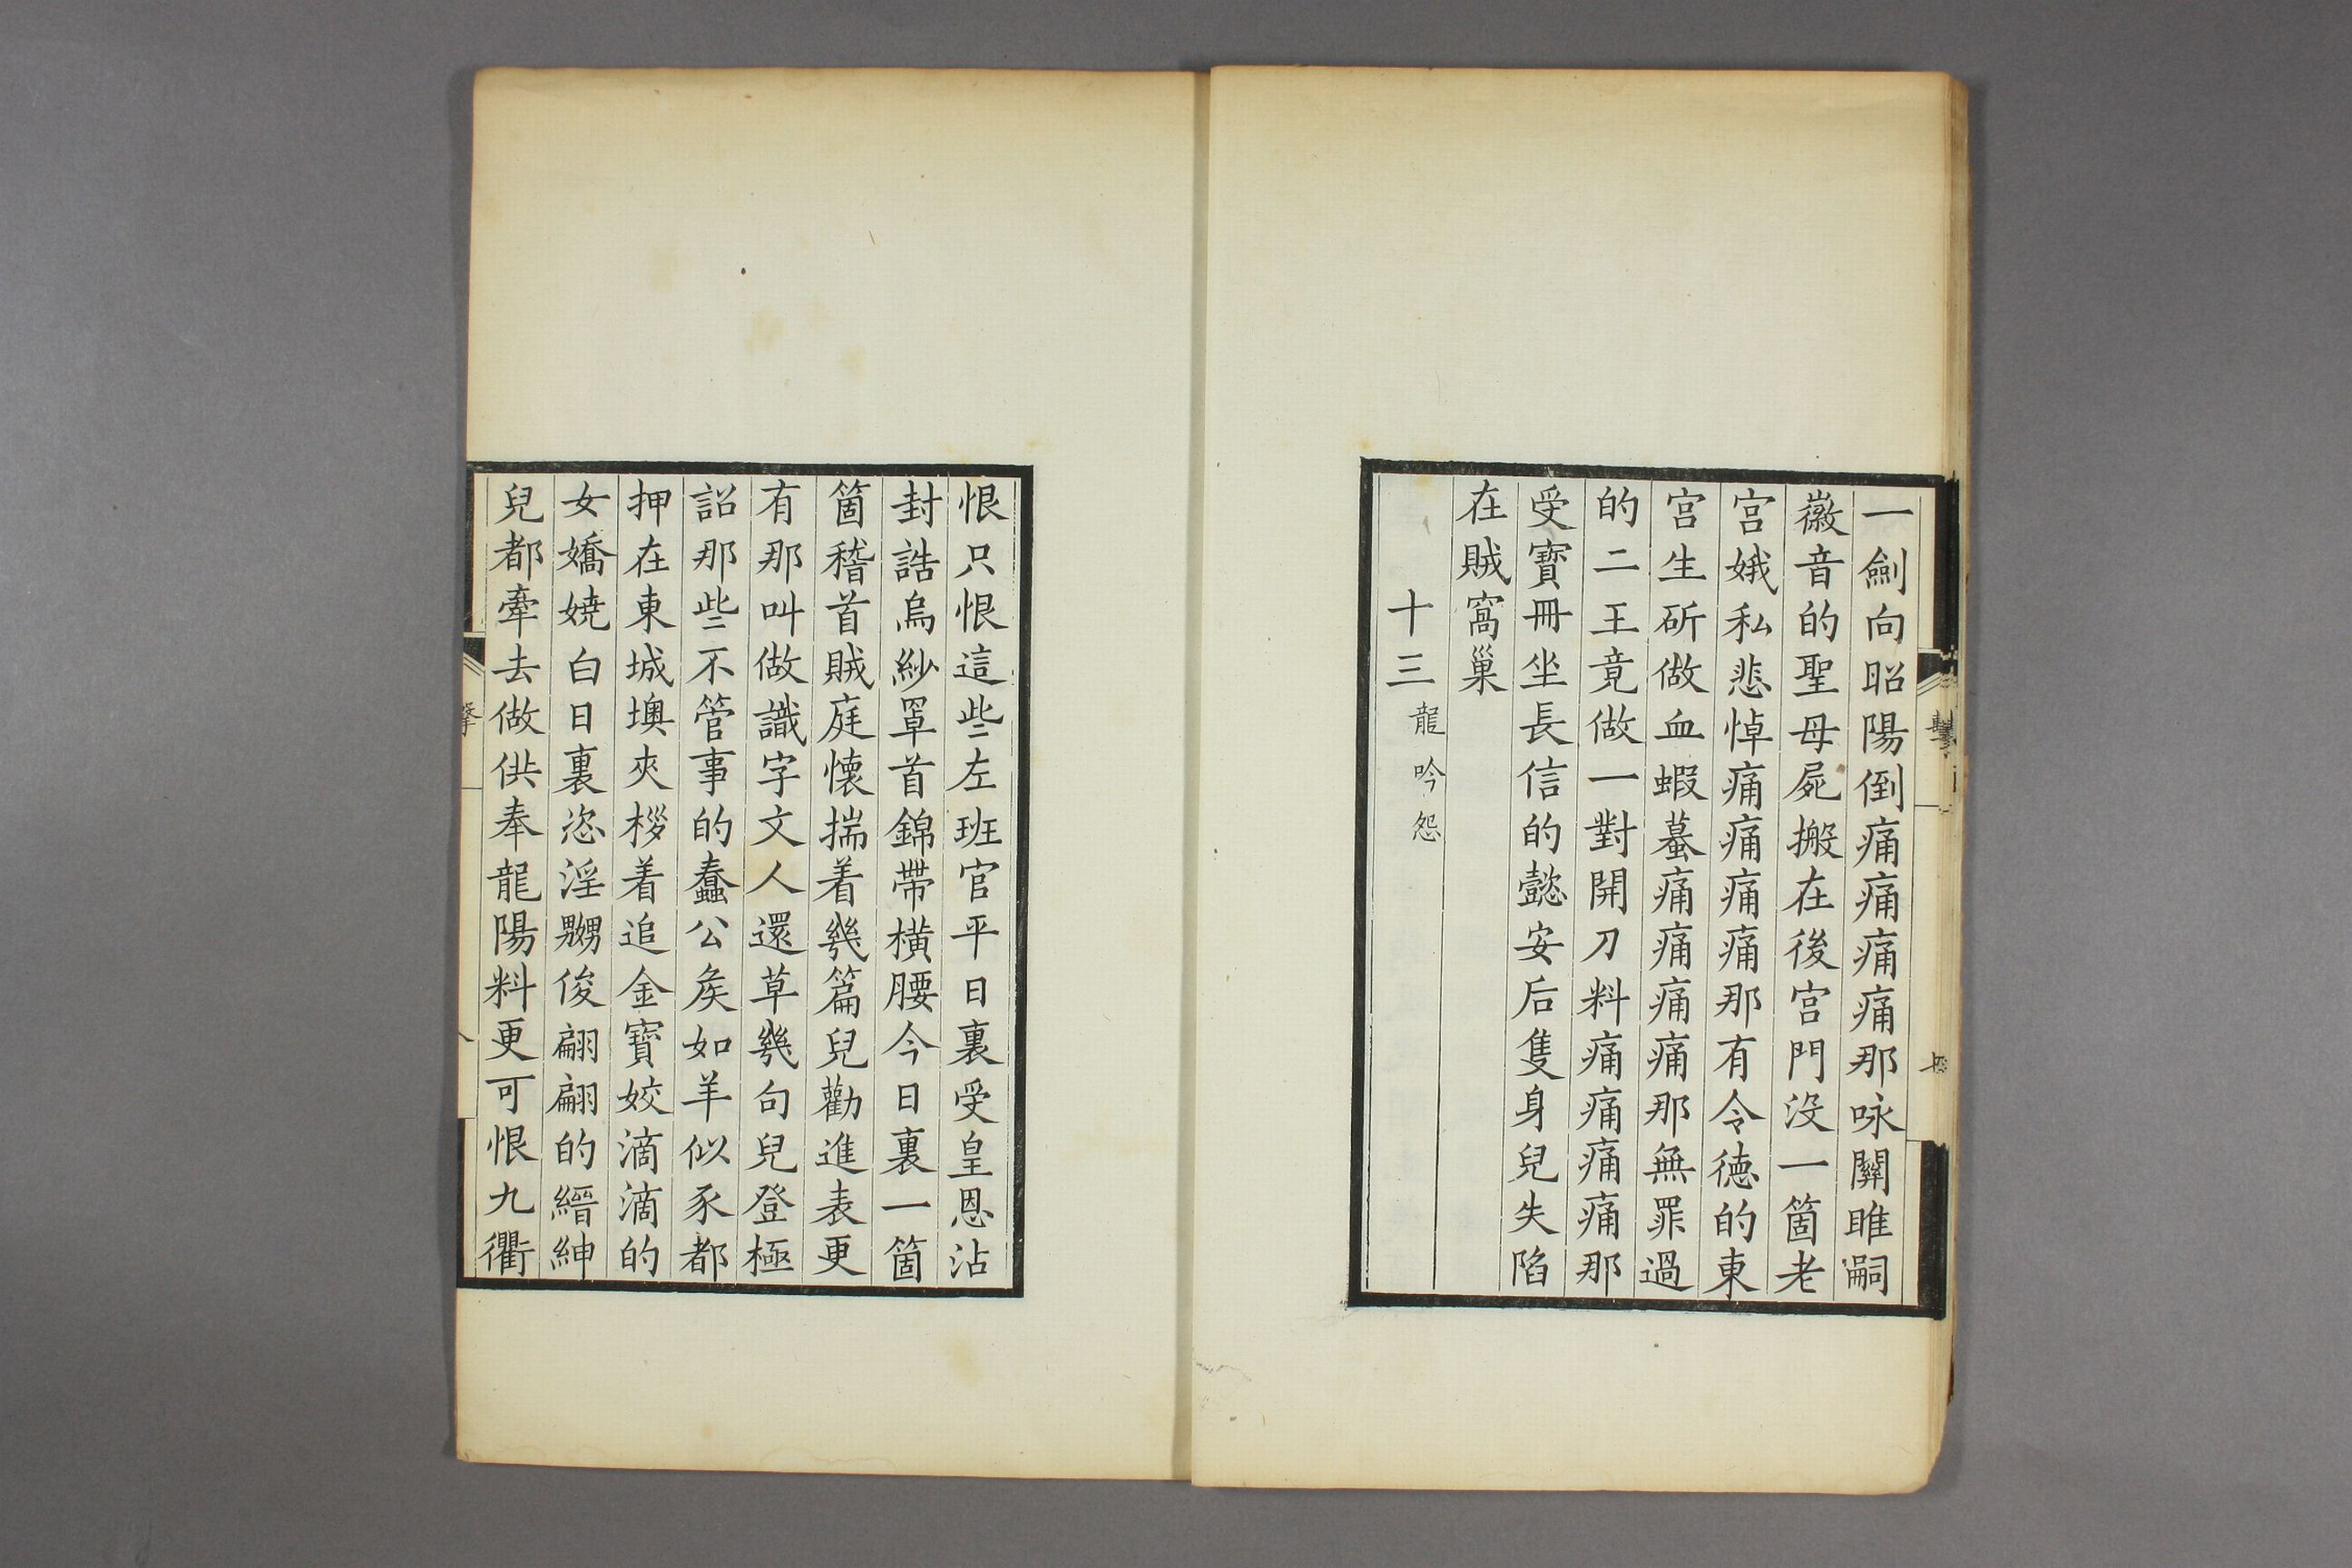 一劍向昭陽倒痛痛痛痛那咏關雎嗣
徽音的聖母屍搬在後宮門沒一箇老
宮娥私悲悼痛痛痛痛那有令德的東
宮生斫做血蝦蟇痛痛痛痛那無罪過
的二王竟做一對開刀料痛痛痛痛那
受寶冊坐長信的懿安后隻身兒失陷
在賊窩巢
十三龍吟怨
恨只恨這些左班官平日裏受皇恩沾
封誥烏紗罩首錦帶橫腰今日裏一箇
箇稽首賊庭懷揣着幾篇兒勸進表更
有那叫做識字文人還草幾句兒登極
詔那些不管事的蠢公矦如羊似豕都
押在東城墺夾桚着追金寶姣滴滴的
女嬌嬈白日裏恣淫嬲俊翩翩的縉紳
兒都牽去做供奉龍陽料更可恨九衢